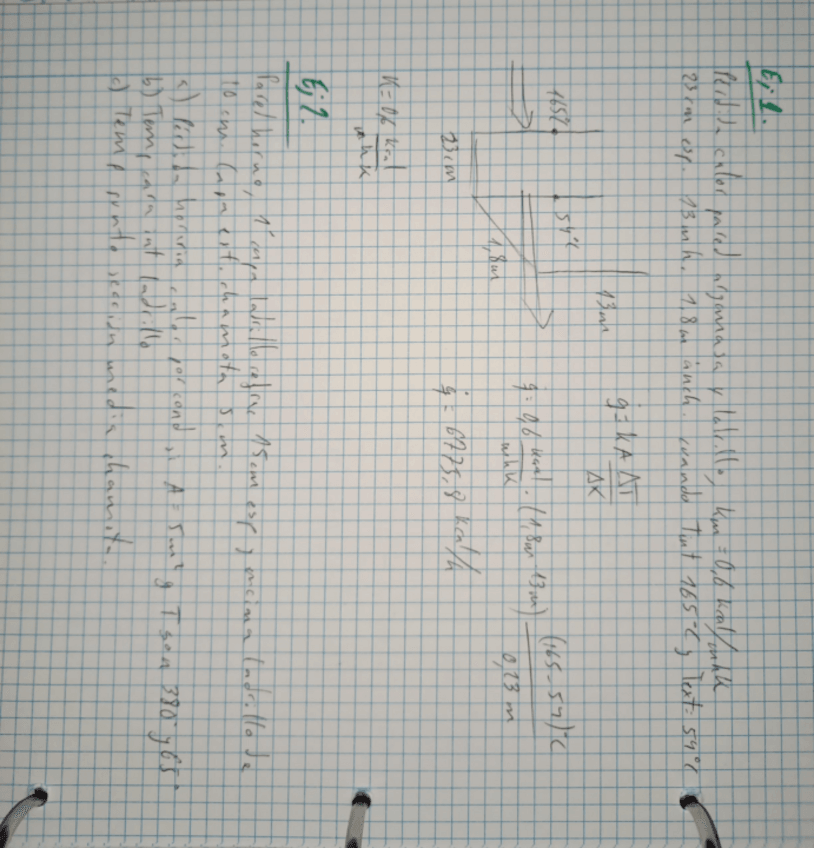 Ej 1.
Pérdida calor pared argamasa y ladrillo, km = 0,6 kcal/mhK
23 cm esp. 13 m h. 1,8 m anch. cuando Tint 165°C y Text = 54°C
q̇ = k A ΔT/ΔX
165°C
54°C
13 m
1,8m
23 cm
q̇ = 0,6 kcal/mhK · (1,8m · 13m) (165 - 54)°C / 0,23 m
q̇ = 6775,8 kcal/h
K = 0,6 kcal/mhK
Ej 2.
Pared horno, 1ª capa ladrillo refrac 15 cm esp y encima ladrillo de
10 cm. Capa ext. chamota 5 cm.
a) Pérdida horaria calor por cond si A = 5 m² y T sea 380° y 65°
b) Temp cara int ladrillo
c) Temp punto sección media chamota.